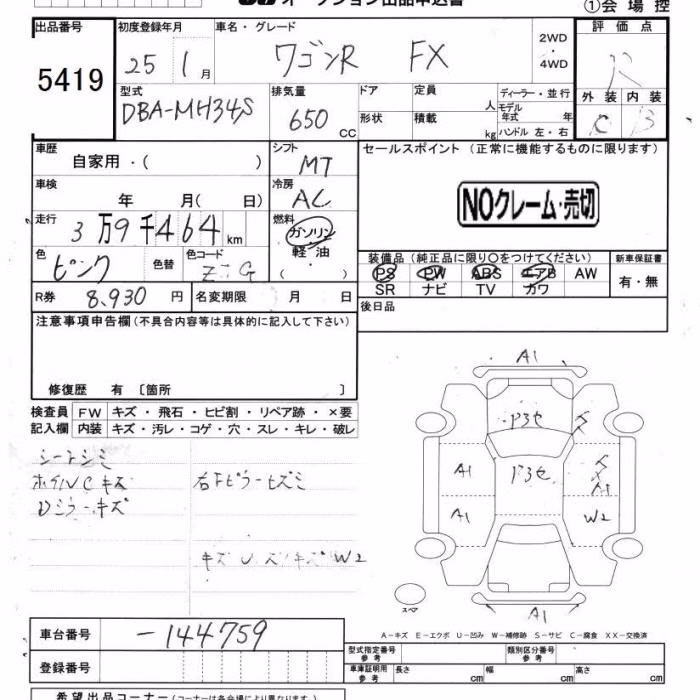 オークション出品申込書
①会場控
出品番号
5419
初度登録年月
25 1月
車名・グレード
ワゴンR FX
2WD
・
4WD
評価点
R
外装 内装
C B
型式
DBA-MH34S
排気量
650
CC
ドア
定員
人
形状
積載
kg
ディーラー・並行
モデル年式 年
ハンドル 左・右
車歴
自家用・( )
シフト
MT
車検
年 月( 日)
冷房
AC
走行
3万9千464km
燃料
ガソリン
軽油
( )
色
ピンク
色替
色コード
R券
8,930円
名変期限
月 日
セールスポイント (正常に機能するものに限ります)
NOクレーム・売切
装備品 (純正品に限り○をつけてください)
PS PW ABS エアB AW
SR ナビ TV カワ
新車保証書
有・無
後日品
注意事項申告欄(不具合内容等は具体的に記入して下さい)
修復歴 有〔箇所 〕
検査員記入欄
FW キズ・飛石・ヒビ割・リペア跡・×要
内装 キズ・汚レ・コゲ・穴・スレ・キレ・破レ
シートシミ
ホイルCキズ
Dミラーキズ
右Fピラーヒズミ
W2
A1
A1
A1
A1
W2
A1
スペア
A-キズ E-エクボ U-凹み W-補修跡 S-サビ C-腐食 XX-交換済
車台番号
-144759
登録番号
型式指定番号
参考
類別区分番号
参考
車庫証明用
参考
長さ cm
幅 cm
高さ cm
希望出品コーナー(コーナーは各会場により異なります。)